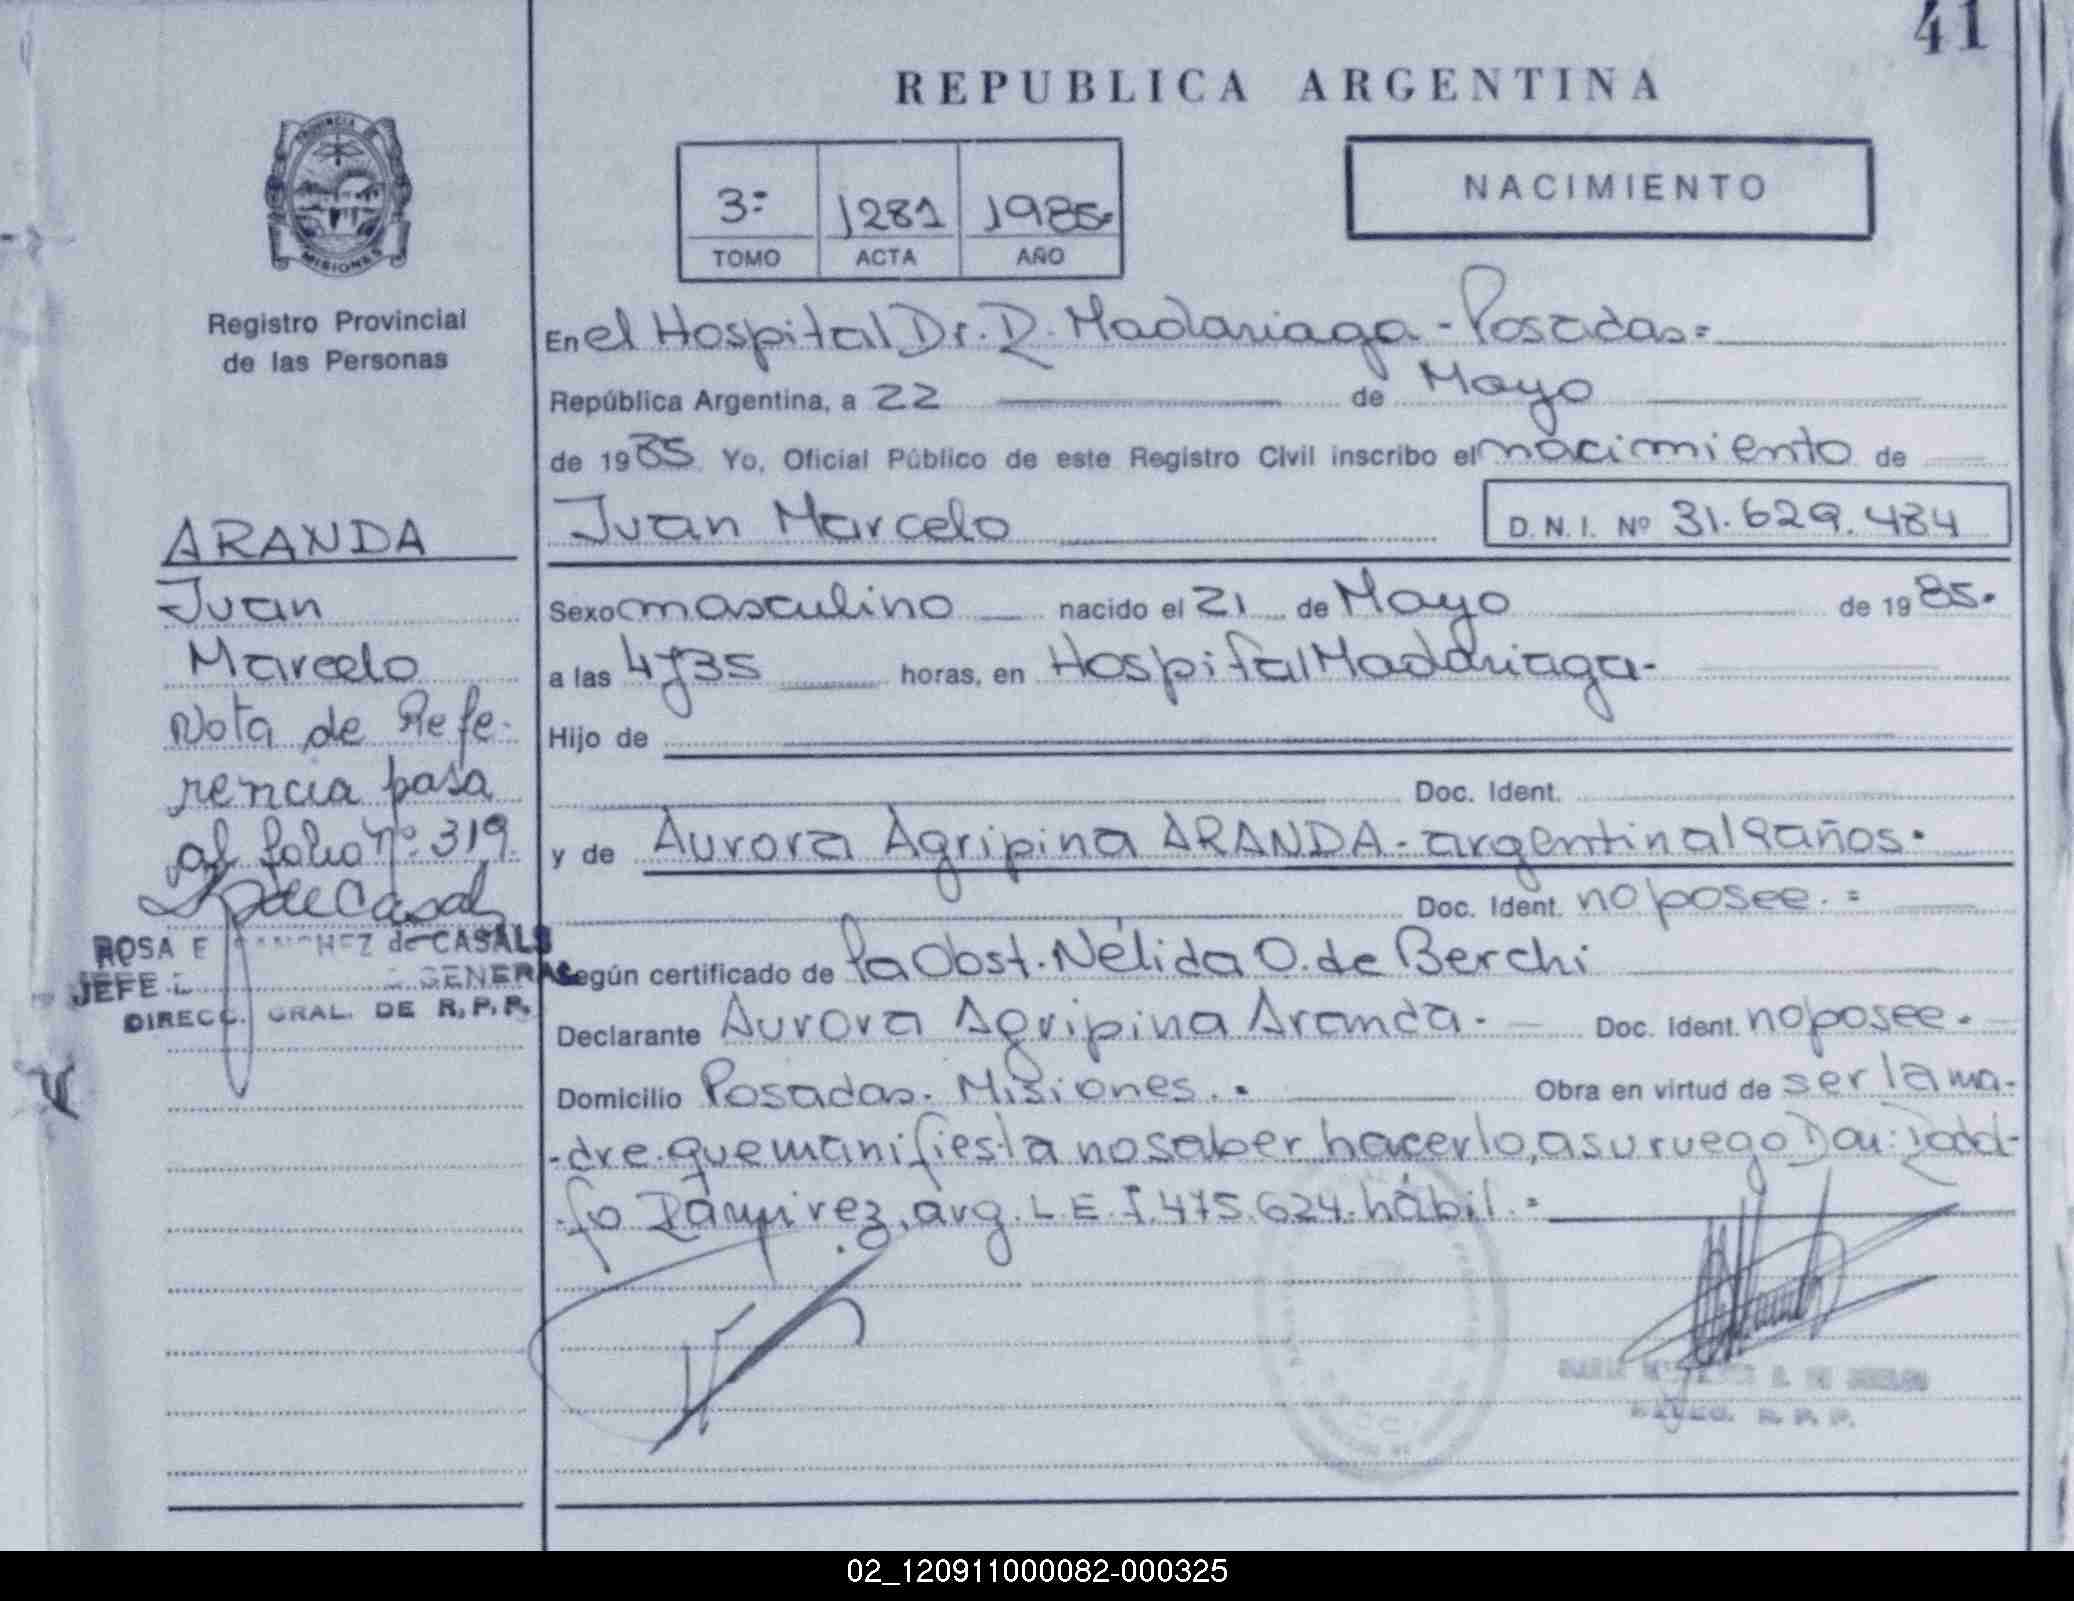 41
REPUBLICA ARGENTINA
PROVINCIA
MISIONES
3º
1281
1985.
TOMO
ACTA
AÑO
NACIMIENTO
Registro Provincial
de las Personas
En el Hospital Dr. R. Madariaga - Posadas =
República Argentina, a 22 de Mayo
de 1985 Yo, Oficial Público de este Registro Civil inscribo el nacimiento de
Juan Marcelo
D.N.I. Nº 31.629.484
Sexo masculino nacido el 21 de Mayo de 1985.
a las 4y35 horas, en Hospital Madariaga-
Hijo de
Doc. Ident.
y de Aurora Agripina ARANDA - argentina 19 años.
Doc. Ident. no posee. =
Según certificado de la Obst. Nélida O. de Berchi
Declarante Aurora Agripina Aranda. Doc. Ident. no posee.
Domicilio Posadas. Misiones. Obra en virtud de ser la ma-
-dre que manifiesta no saber hacerlo, a su ruego Don: Rodol-
fo Ramirez, arg. L.E. 7.475.624. hábil. =
ARANDA
Juan
Marcelo
Nota de Refe-
rencia pasa
al folio nº 319.
ROSA E de CASALS
JEFE GENERAL
DIRECC. GRAL. DE R.P.P.
R. P. P.
02_120911000082-000325